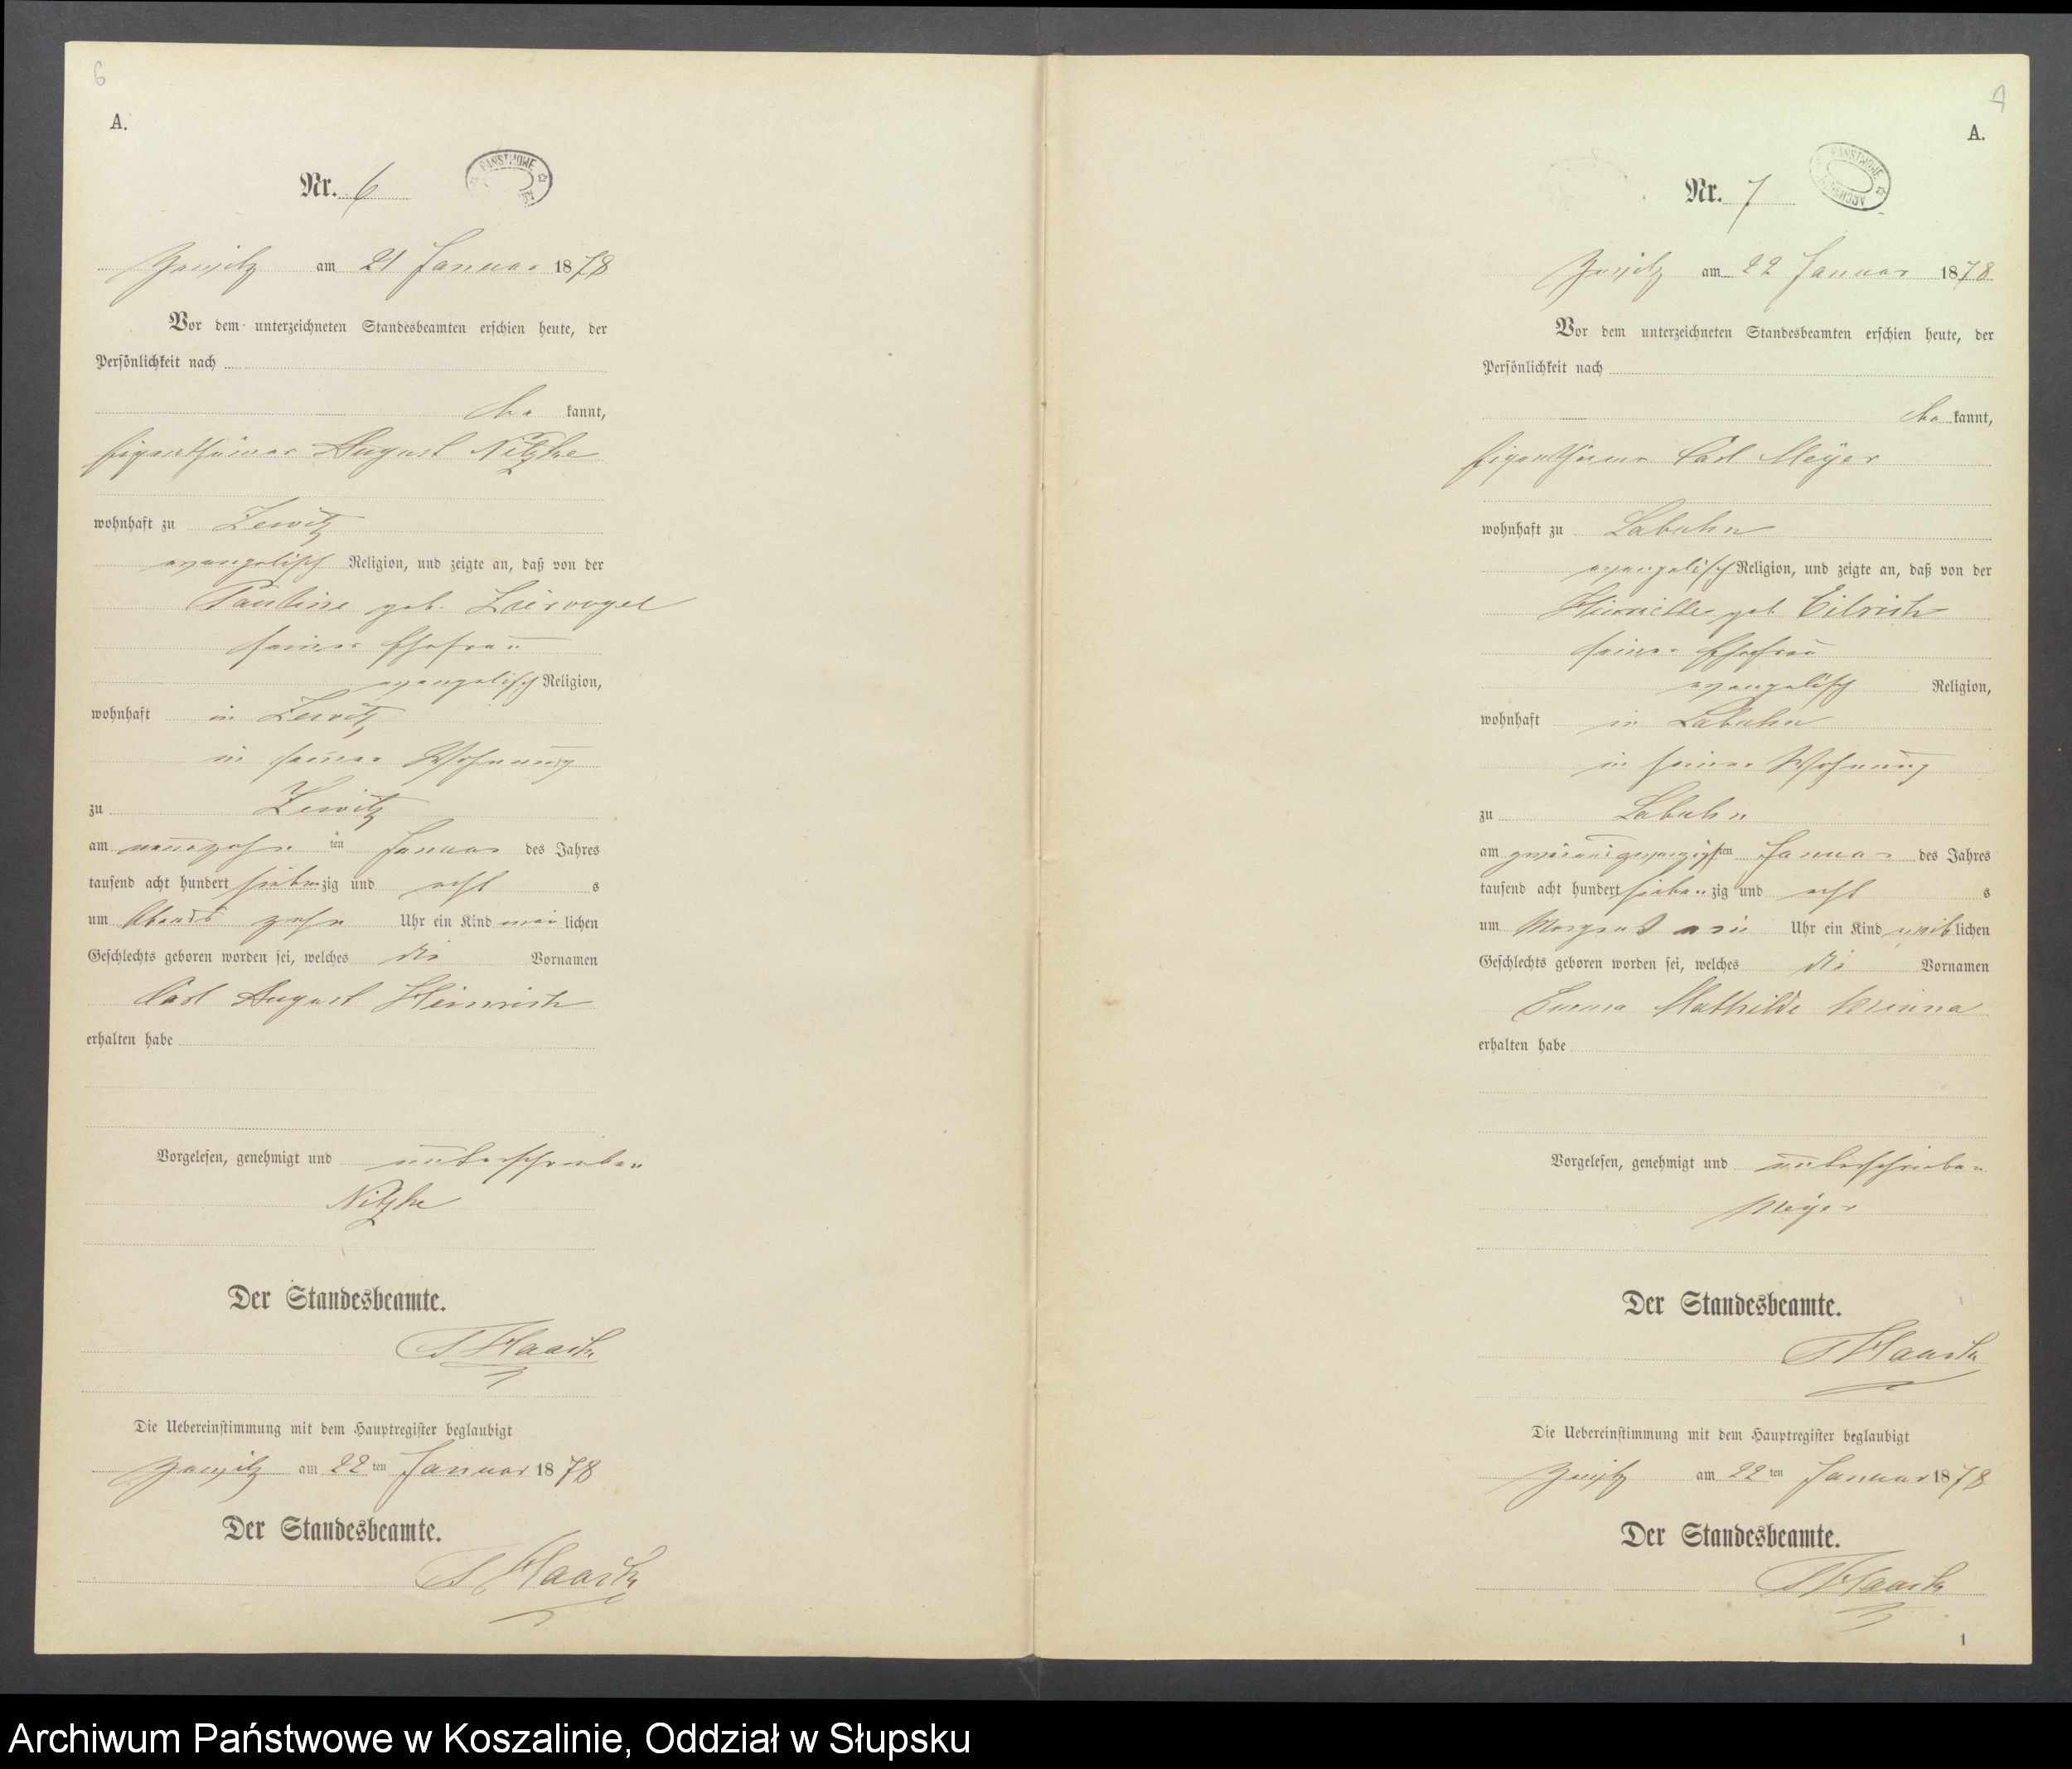 6
A.
Nr. 6
PAŃSTWOWE
am 21 Januar 1878
Vor dem unterzeichneten Standesbeamten erschien heute, der
Persönlichkeit nach
be kannt,
Eigenthümer August Nitzke
wohnhaft zu Zewitz
evangelisch Religion, und zeigte an, daß von der
Pauline geb.
seiner Ehefrau
evangelisch Religion,
wohnhaft in Zewitz
in seiner Wohnung
zu Zewitz
am neunzehn ten Januar des Jahres
tausend acht hundert siebenzig und acht s
um Abends zehn Uhr ein Kind män lichen
Geschlechts geboren worden sei, welches die Vornamen
Carl August Heinrich
erhalten habe
Vorgelesen, genehmigt und unterschrieben
Nitzke
Der Standesbeamte.
Die Uebereinstimmung mit dem Hauptregister beglaubigt
am 22ten Januar 1878
Der Standesbeamte.
7
A.
Nr. 7
PAŃSTWOWE ARCHIWUM
am 22 Januar 1878
Vor dem unterzeichneten Standesbeamten erschien heute, der
Persönlichkeit nach
be kannt,
Eigenthümer Carl Meÿer
wohnhaft zu Labuhn
evangelisch Religion, und zeigte an, daß von der
Henriette geb.
seiner Ehefrau
evangelisch Religion,
wohnhaft in Labuhn
in seiner Wohnung
zu Labuhn
am zweiundzwanzigsten Januar des Jahres
tausend acht hundert siebenzig und acht s
um Morgens Uhr ein Kind weiblichen
Geschlechts geboren worden sei, welches die Vornamen
Emma Mathilde Minna
erhalten habe
Vorgelesen, genehmigt und unterschrieben
Meÿer
Der Standesbeamte.
Die Uebereinstimmung mit dem Hauptregister beglaubigt
am 22ten Januar 1878
Der Standesbeamte.
1
Archiwum Państwowe w Koszalinie, Oddział w Słupsku